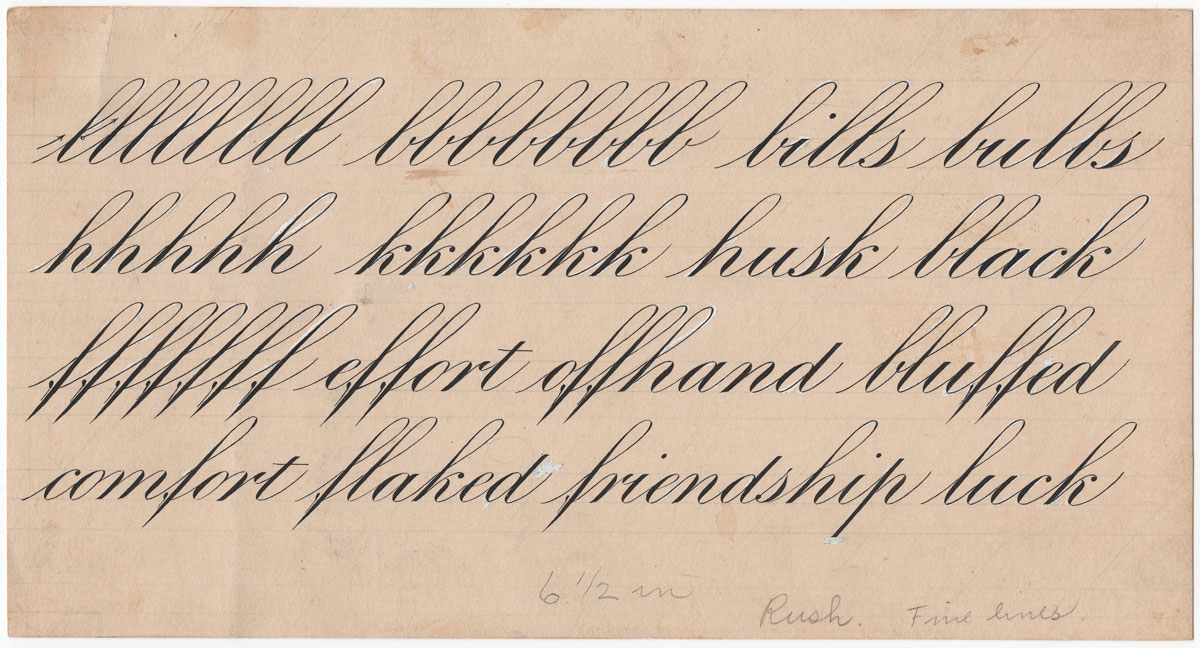 llllllll bbbbbbbb bills bulbs
hhhhh kkkkkkk husk black
fffffff effort offhand bluffed
comfort flaked friendship luck
6 1/2 in
Rush. Fine lines.